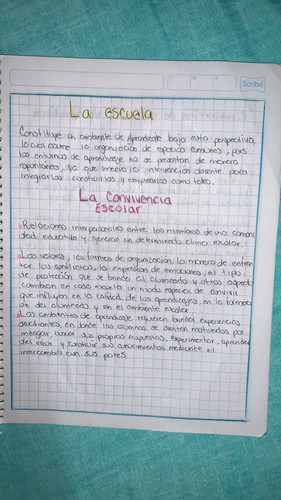 Scribe
La escuela
Constituye un ambiente de Aprendizaje bajo esta perspectiva,
lo cual ocurre la organización de espacios comunes, pues
los entornos de aprendizaje no se presentan de manera
espontánea, ya que media la intervención docente para
integrarlos, construirlos y emplearlos como tales.
La Convivencia
Escolar
Relaciones interpersonales entre los miembros de una comuni
dad educativa y generan un determinado clima escolar.
Los valores, las formas de organización, la manera de enfren
tar los conflictos, la expresión de emociones, el tipo
de protección que se brinda al alumnado y otros aspectos
cambian en cada escuela un modo especial de convivir
que influyen en la calidad de los aprendizajes, en la formaci
ón del alumnado y en el ambiente escolar.
Los ambientes de aprendizaje requieren brindar experiencias
desafiantes, en donde los alumnos se sientan motivados por
indagar, buscar sus propias respuestas, experimentar, aprender
del error y construir sus conocimientos mediante el
intercambio con sus pares.